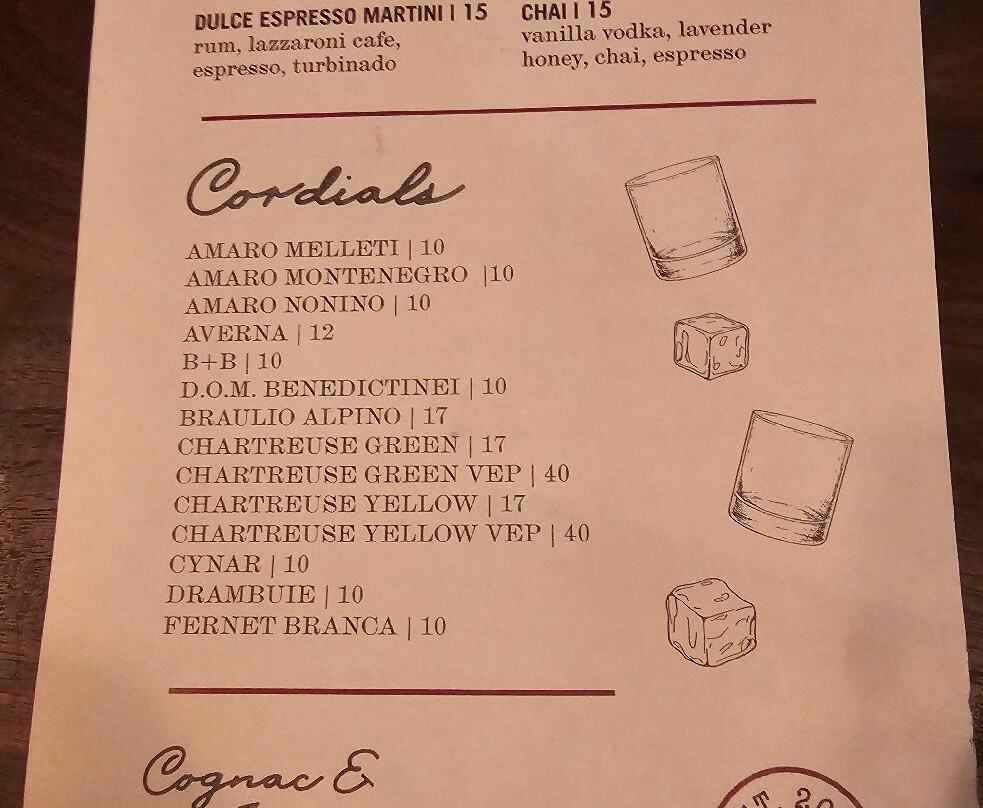 DULCE ESPRESSO MARTINI | 15
rum, lazzaroni cafe,
espresso, turbinado
CHAI | 15
vanilla vodka, lavender
honey, chai, espresso
Cordials
AMARO MELLETI | 10
AMARO MONTENEGRO |10
AMARO NONINO | 10
AVERNA | 12
B+B | 10
D.O.M. BENEDICTINEI | 10
BRAULIO ALPINO | 17
CHARTREUSE GREEN | 17
CHARTREUSE GREEN VEP | 40
CHARTREUSE YELLOW | 17
CHARTREUSE YELLOW VEP | 40
CYNAR | 10
DRAMBUIE | 10
FERNET BRANCA | 10
Cognac &